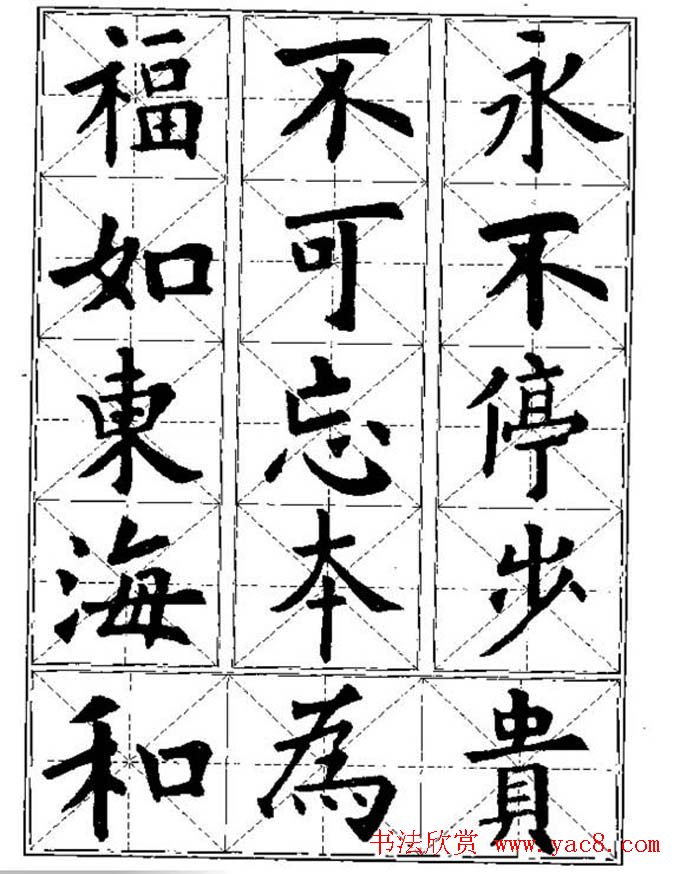 福如東海
不可忘本
永不停步
和為貴
书法欣赏 www.yac8.com